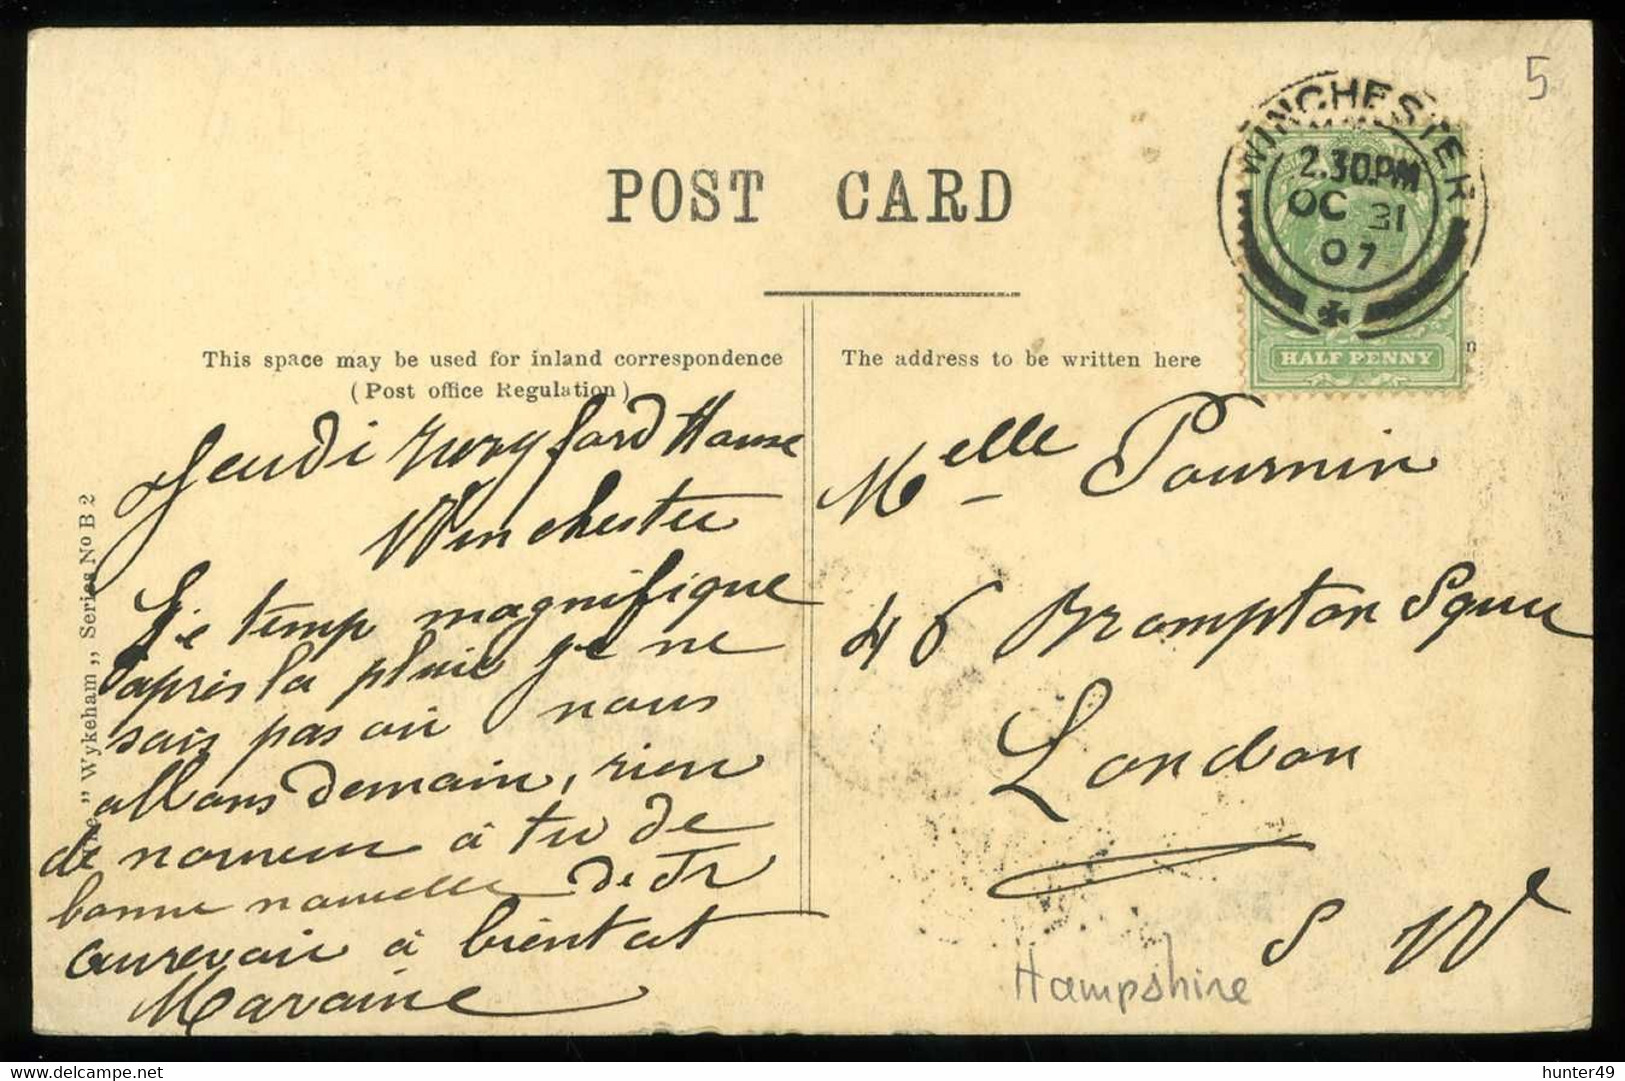 5
WINCHESTER
2.30PM
OC 31
07
HALF PENNY
POST CARD
This space may be used for inland correspondence
(Post office Regulation)
The address to be written here
n
„ Wykeham „ Series No B 2
Jeudi House
Winchester
temp magnifique
après la pluie je ne
sais pas ou nous
allons demain, rien
de nouveau à tu de
bonne nouvelle de
aurevoir à bientot
Maraine
Melle Pournin
46 Brompton Square
London
S W
Hampshire
hunter49